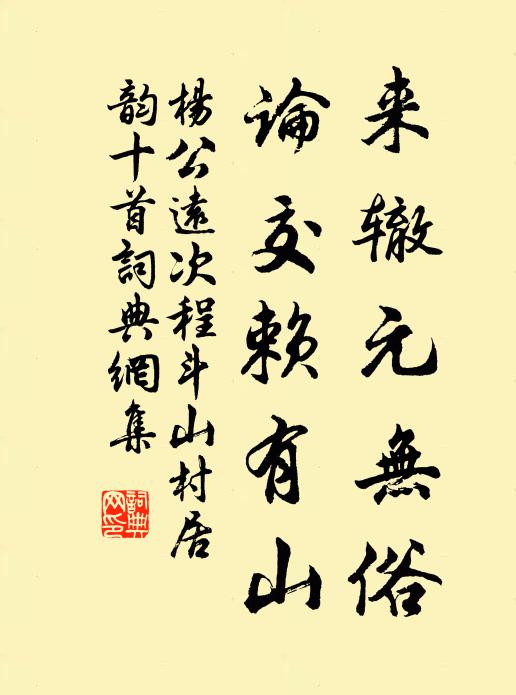 来辙元無俗
论交赖有山
楊公遠次程斗山村居
韵十首詞典網集
詞典
网印